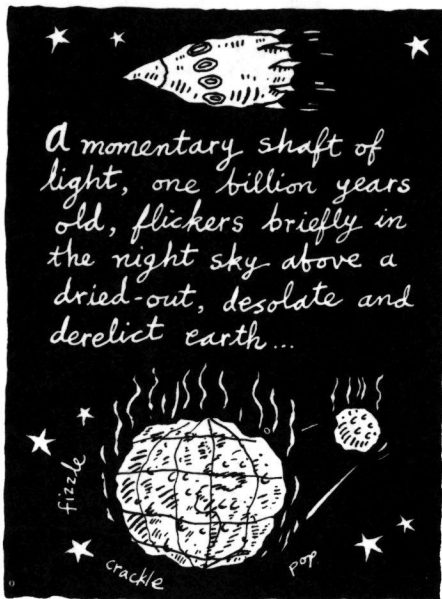 a momentary shaft of
light, one billion years
old, flickers briefly in
the night sky above a
dried-out, desolate and
derelict earth...
fizzle
crackle
pop